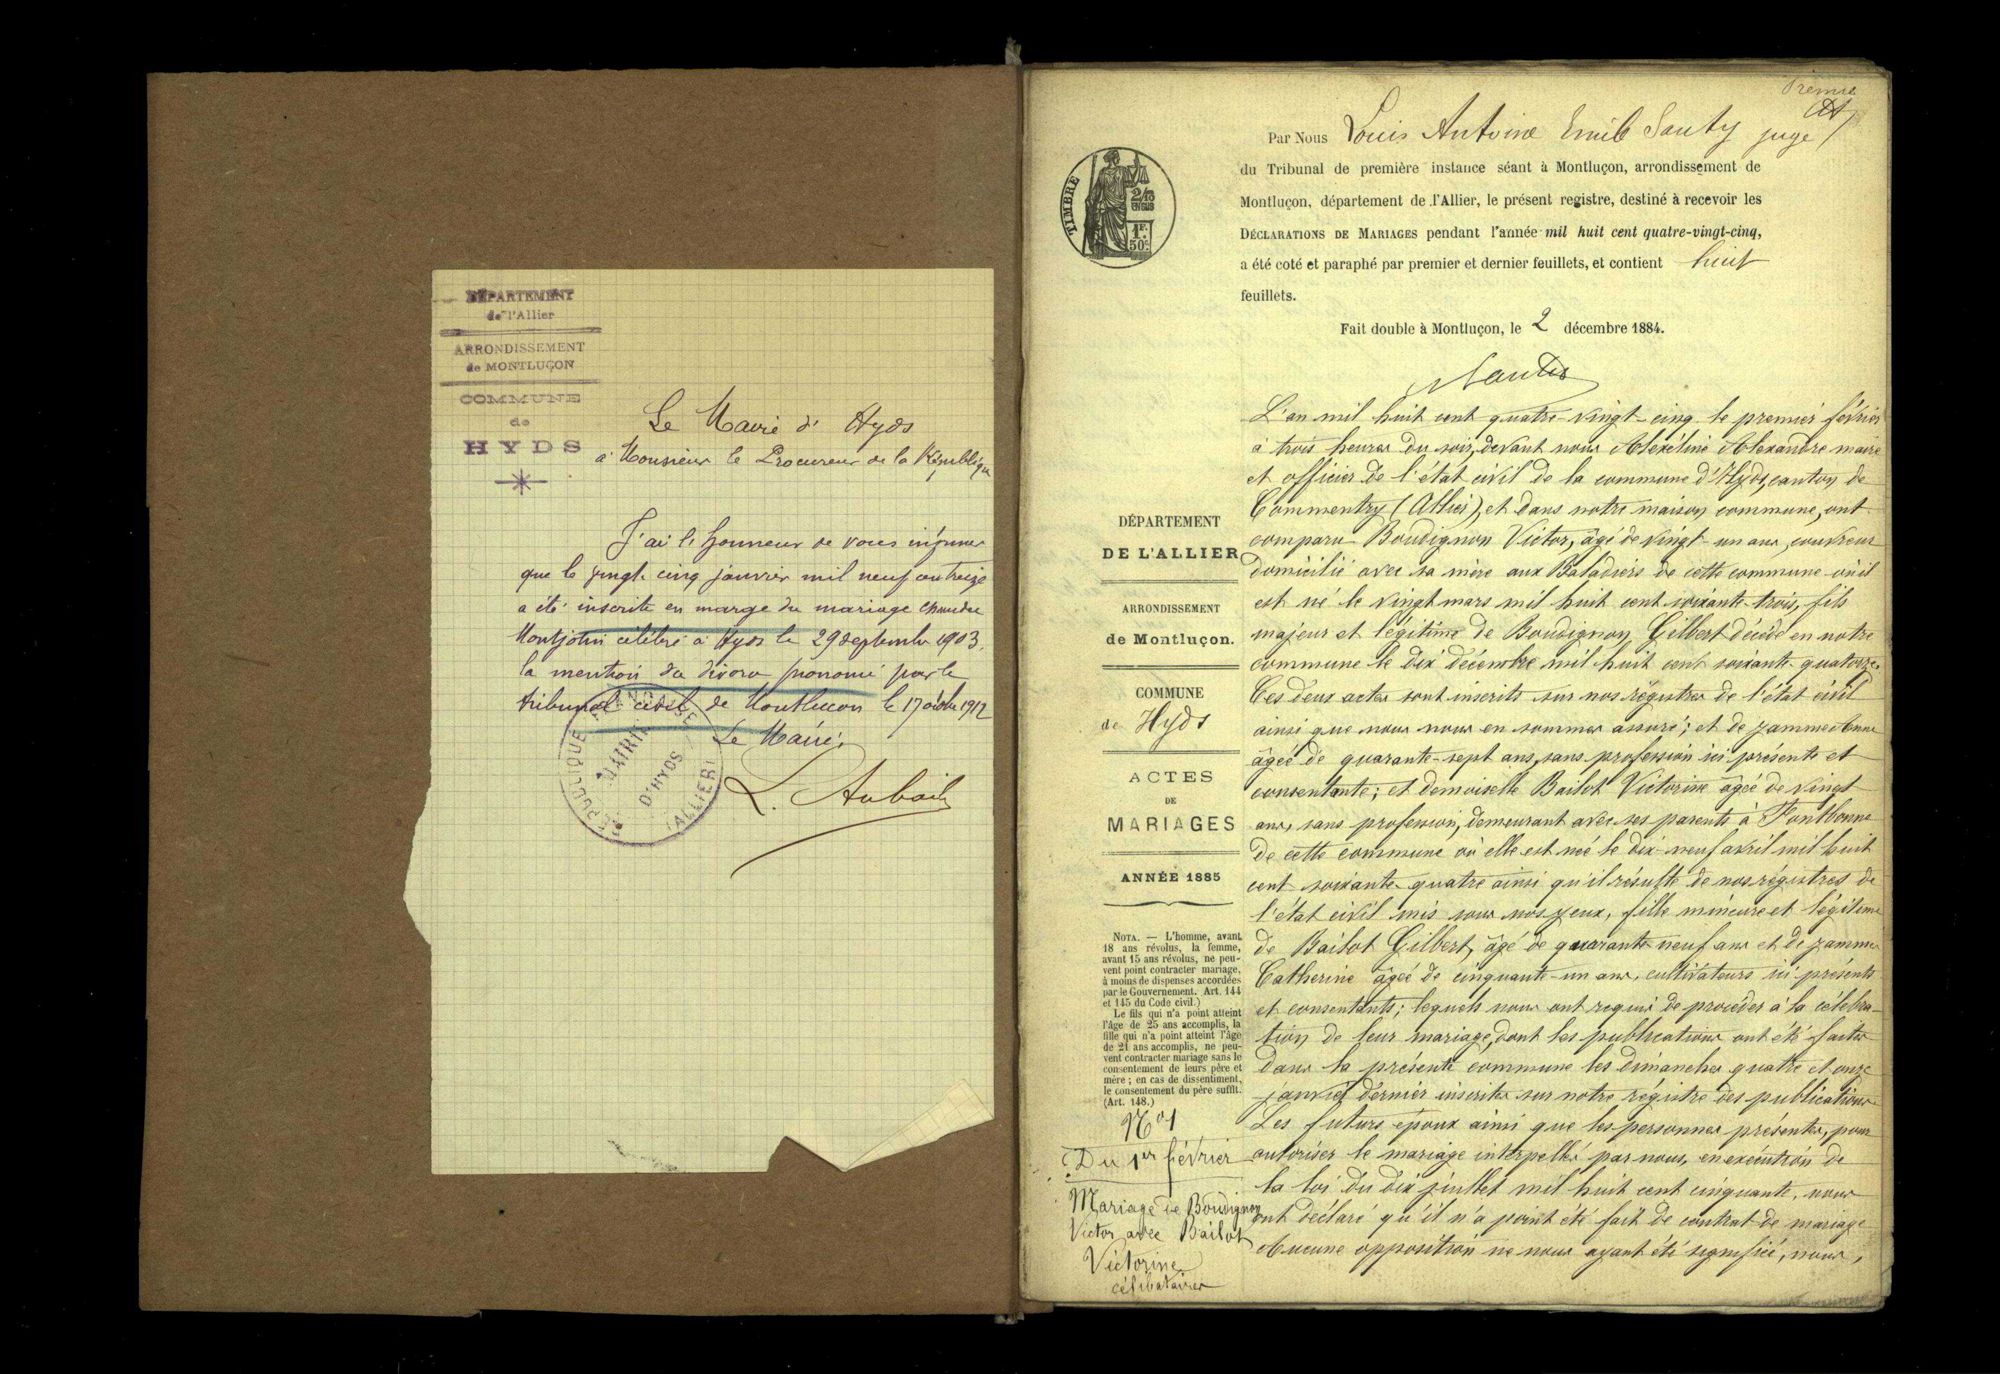 DÉPARTEMENT
de l'Allier
ARRONDISSEMENT
de MONTLUÇON
COMMUNE
de
HYDS
Le Maire d' Hyds
à Monsieur le Procureur de la République
J'ai l'honneur de vous informer
que le vingt cinq janvier mil neuf cent treize
a été inscrite en marge du mariage
Montjotin célébré à Hyds le 29 septembre 1903,
la mention du divorce prononcé par le
tribunal civil de Montluçon le 17 octobre 1912
Le Maire,
L. Aubail
RÉPUBLIQUE FRANÇAISE
MAIRIE
D'HYDS
(ALLIER)
Premier
TIMBRE
2/10
EN SUS
1F.
50c.
Par Nous Louis Antoine Emile Sauty juge
du Tribunal de première instance séant à Montluçon, arrondissement de
Montluçon, département de l'Allier, le présent registre, destiné à recevoir les
DÉCLARATIONS DE MARIAGES pendant l'année mil huit cent quatre-vingt-cinq,
a été coté et paraphé par premier et dernier feuillets, et contient huit
feuillets.
Fait double à Montluçon, le 2 décembre 1884.
DÉPARTEMENT
DE L'ALLIER
ARRONDISSEMENT
de Montluçon.
COMMUNE
de Hyds
ACTES
DE
MARIAGES
ANNÉE 1885
NOTA. — L'homme, avant
18 ans révolus, la femme,
avant 15 ans révolus, ne peu-
vent point contracter mariage,
à moins de dispenses accordées
par le Gouvernement. Art. 144
et 145 du Code civil.)
Le fils qui n'a point atteint
l'âge de 25 ans accomplis, la
fille qui n'a point atteint l'âge
de 21 ans accomplis, ne peu-
vent contracter mariage sans le
consentement de leurs père et
mère ; en cas de dissentiment,
le consentement du père suffit.
(Art. 148.)
No 1
Du 1er février
Mariage de Boudignon
Victor avec Bailot
Victorine
célibataires
L'an mil huit cent quatre-vingt-cinq le premier février
à trois heures du soir, devant nous Alexandre maire
et officier de l'état civil de la commune d'Hyds, canton de
Commentry (Allier), et dans notre maison commune, ont
comparu Boudignon Victor, âgé de vingt-un ans, couvreur
domicilié avec sa mère aux Baladiers de cette commune où il
est né le vingt mars mil huit cent soixante-trois, fils
majeur et légitime de Boudignon Gilbert décédé en notre
commune le dix décembre mil huit cent soixante quatorze.
Ces deux actes sont inscrits sur nos régistres de l'état civil
ainsi que nous nous en sommes assuré; et de Jamme Anne
âgée de quarante-sept ans, sans profession ici présente et
consentante; et demoiselle Bailot Victorine âgée de vingt
ans, sans profession, demeurant avec ses parents à Fontbonne
de cette commune où elle est née le dix-neuf avril mil huit
cent soixante quatre ainsi qu'il résulte de nos régistres de
l'état civil mis sous nos yeux, fille mineure et légitime
de Bailot Gilbert, âgé de quarante neuf ans et de Jamme
Catherine âgée de cinquante-un ans, cultivateurs ici présents
et consentants; lequels nous ont requis de procéder à la célébra-
tion de leur mariage, dont les publications ont été faites
dans la présente commune les dimanches quatre et onze
janvier dernier inscrites sur notre régistre des publications
Les futurs époux ainsi que les personnes présentes, pour
autoriser le mariage interpellés par nous, en exécution de
la loi du dix juillet mil huit cent cinquante, nous
ont déclaré qu'il n'a point été fait de contrat de mariage
Aucune opposition ne nous ayant été signifiée, nous,